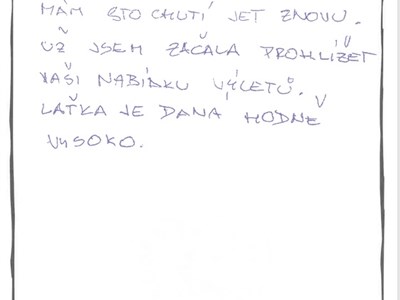 MÁM STO CHUTÍ JET ZNOVU.
UŽ JSEM ZAČALA PROHLÍŽET
VAŠI NABÍDKU VÝLETŮ.
LAŤKA JE DANÁ HODNĚ
VYSOKO.